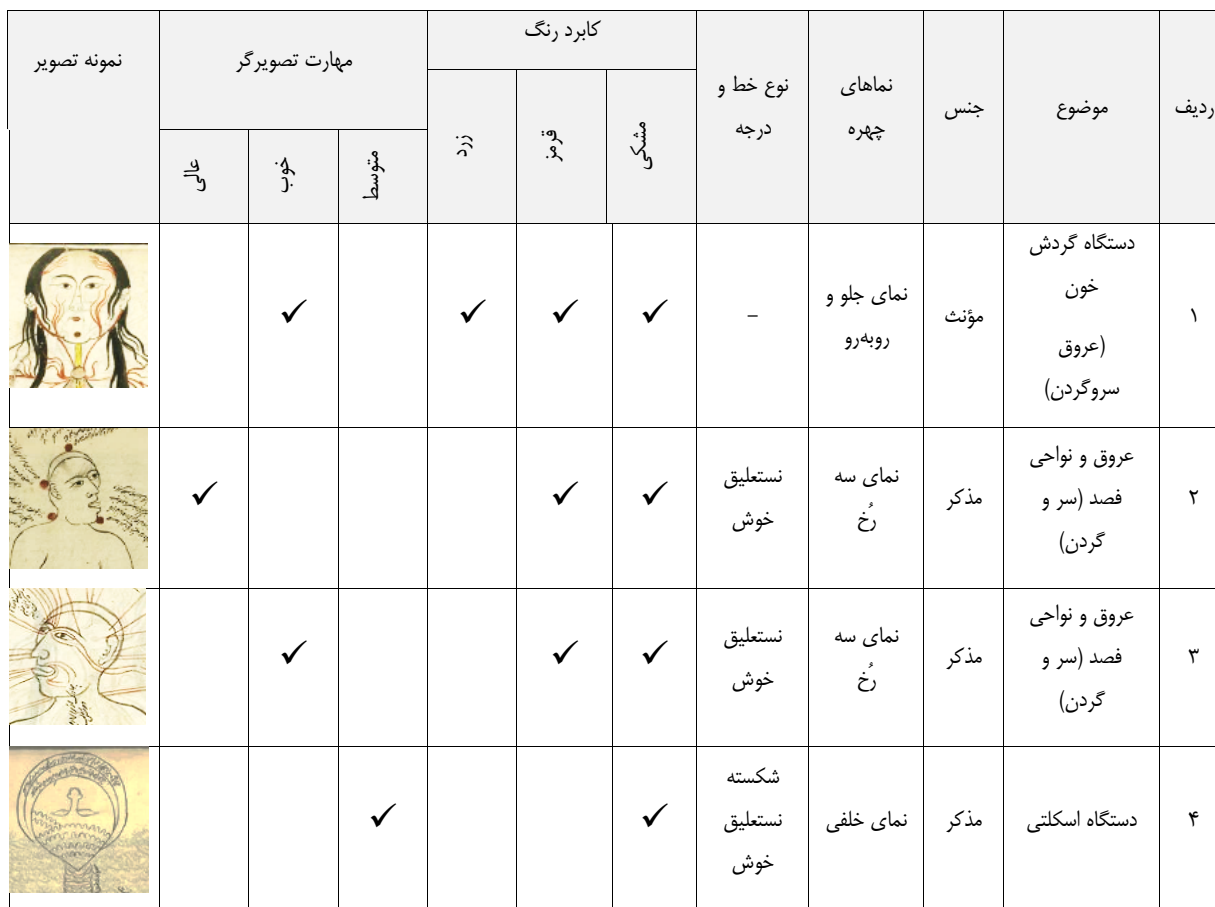 ردیف
موضوع
جنس
نماهای
چهره
نوع خط و
درجه
کابرد رنگ
مشکی
قرمز
زرد
مهارت تصویرگر
متوسط
خوب
عالی
نمونه تصویر
۱
دستگاه گردش
خون
(عروق
سروگردن)
مؤنث
نمای جلو و
روبه‌رو
–
✓
✓
✓
✓
۲
عروق و نواحی
فصد (سر و
گردن)
مذکر
نمای سه
رُخ
نستعلیق
خوش
✓
✓
✓
۳
عروق و نواحی
فصد (سر و
گردن)
مذکر
نمای سه
رُخ
نستعلیق
خوش
✓
✓
✓
۴
دستگاه اسکلتی
مذکر
نمای خلفی
شکسته
نستعلیق
خوش
✓
✓